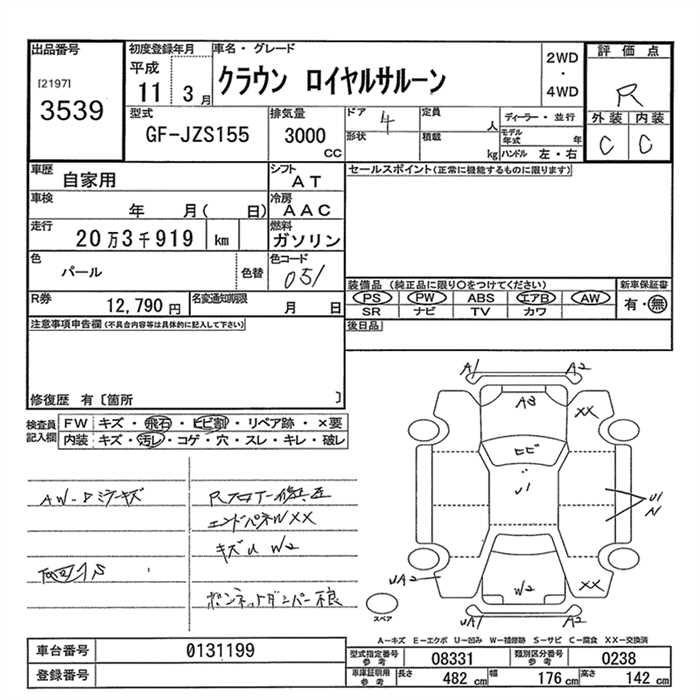 出品番号
[2197]
3539
初度登録年月
平成
11 3月
車名・グレード
クラウン ロイヤルサルーン
2WD
・
4WD
評価点
R
外装 内装
C C
型式
GF-JZS155
排気量
3000
CC
ドア 4
形状
定員
人
積載
kg
ディーラー・並行
モデル年式 年
ハンドル 左・右
車歴
自家用
シフト
AT
セールスポイント(正常に機能するものに限ります)
車検
年 月( 日)
冷房
AAC
走行
20万3千919 km
燃料
ガソリン
色
パール
色替
色コード
051
装備品(純正品に限り○をつけてください)
PS PW ABS エアB AW
SR ナビ TV カワ
新車保証書
有・無
R券
12,790 円
名変通知期限
月 日
後日品
注意事項申告欄(不具合内容等は具体的に記入して下さい)
修復歴 有〔箇所 〕
検査員
記入欄
FW キズ・飛石・ヒビ割・リペア跡・×要
内装 キズ・汚レ・コゲ・穴・スレ・キレ・破レ
エンドパネW XX
キズU W2
ボンネットダンパー不良
A1 A2
AB
XX
ヒビ
U1
U1
N
UA2
W2
XX
UA1 A2
スペア
A―キズ E―エクボ U―凹み W―補修跡 S―サビ C―腐食 XX―交換済
車台番号 0131199
登録番号
型式指定番号
参考
08331
類別区分番号
参考
0238
車庫証明用
参考
長さ 482 cm 幅 176 cm 高さ 142 cm